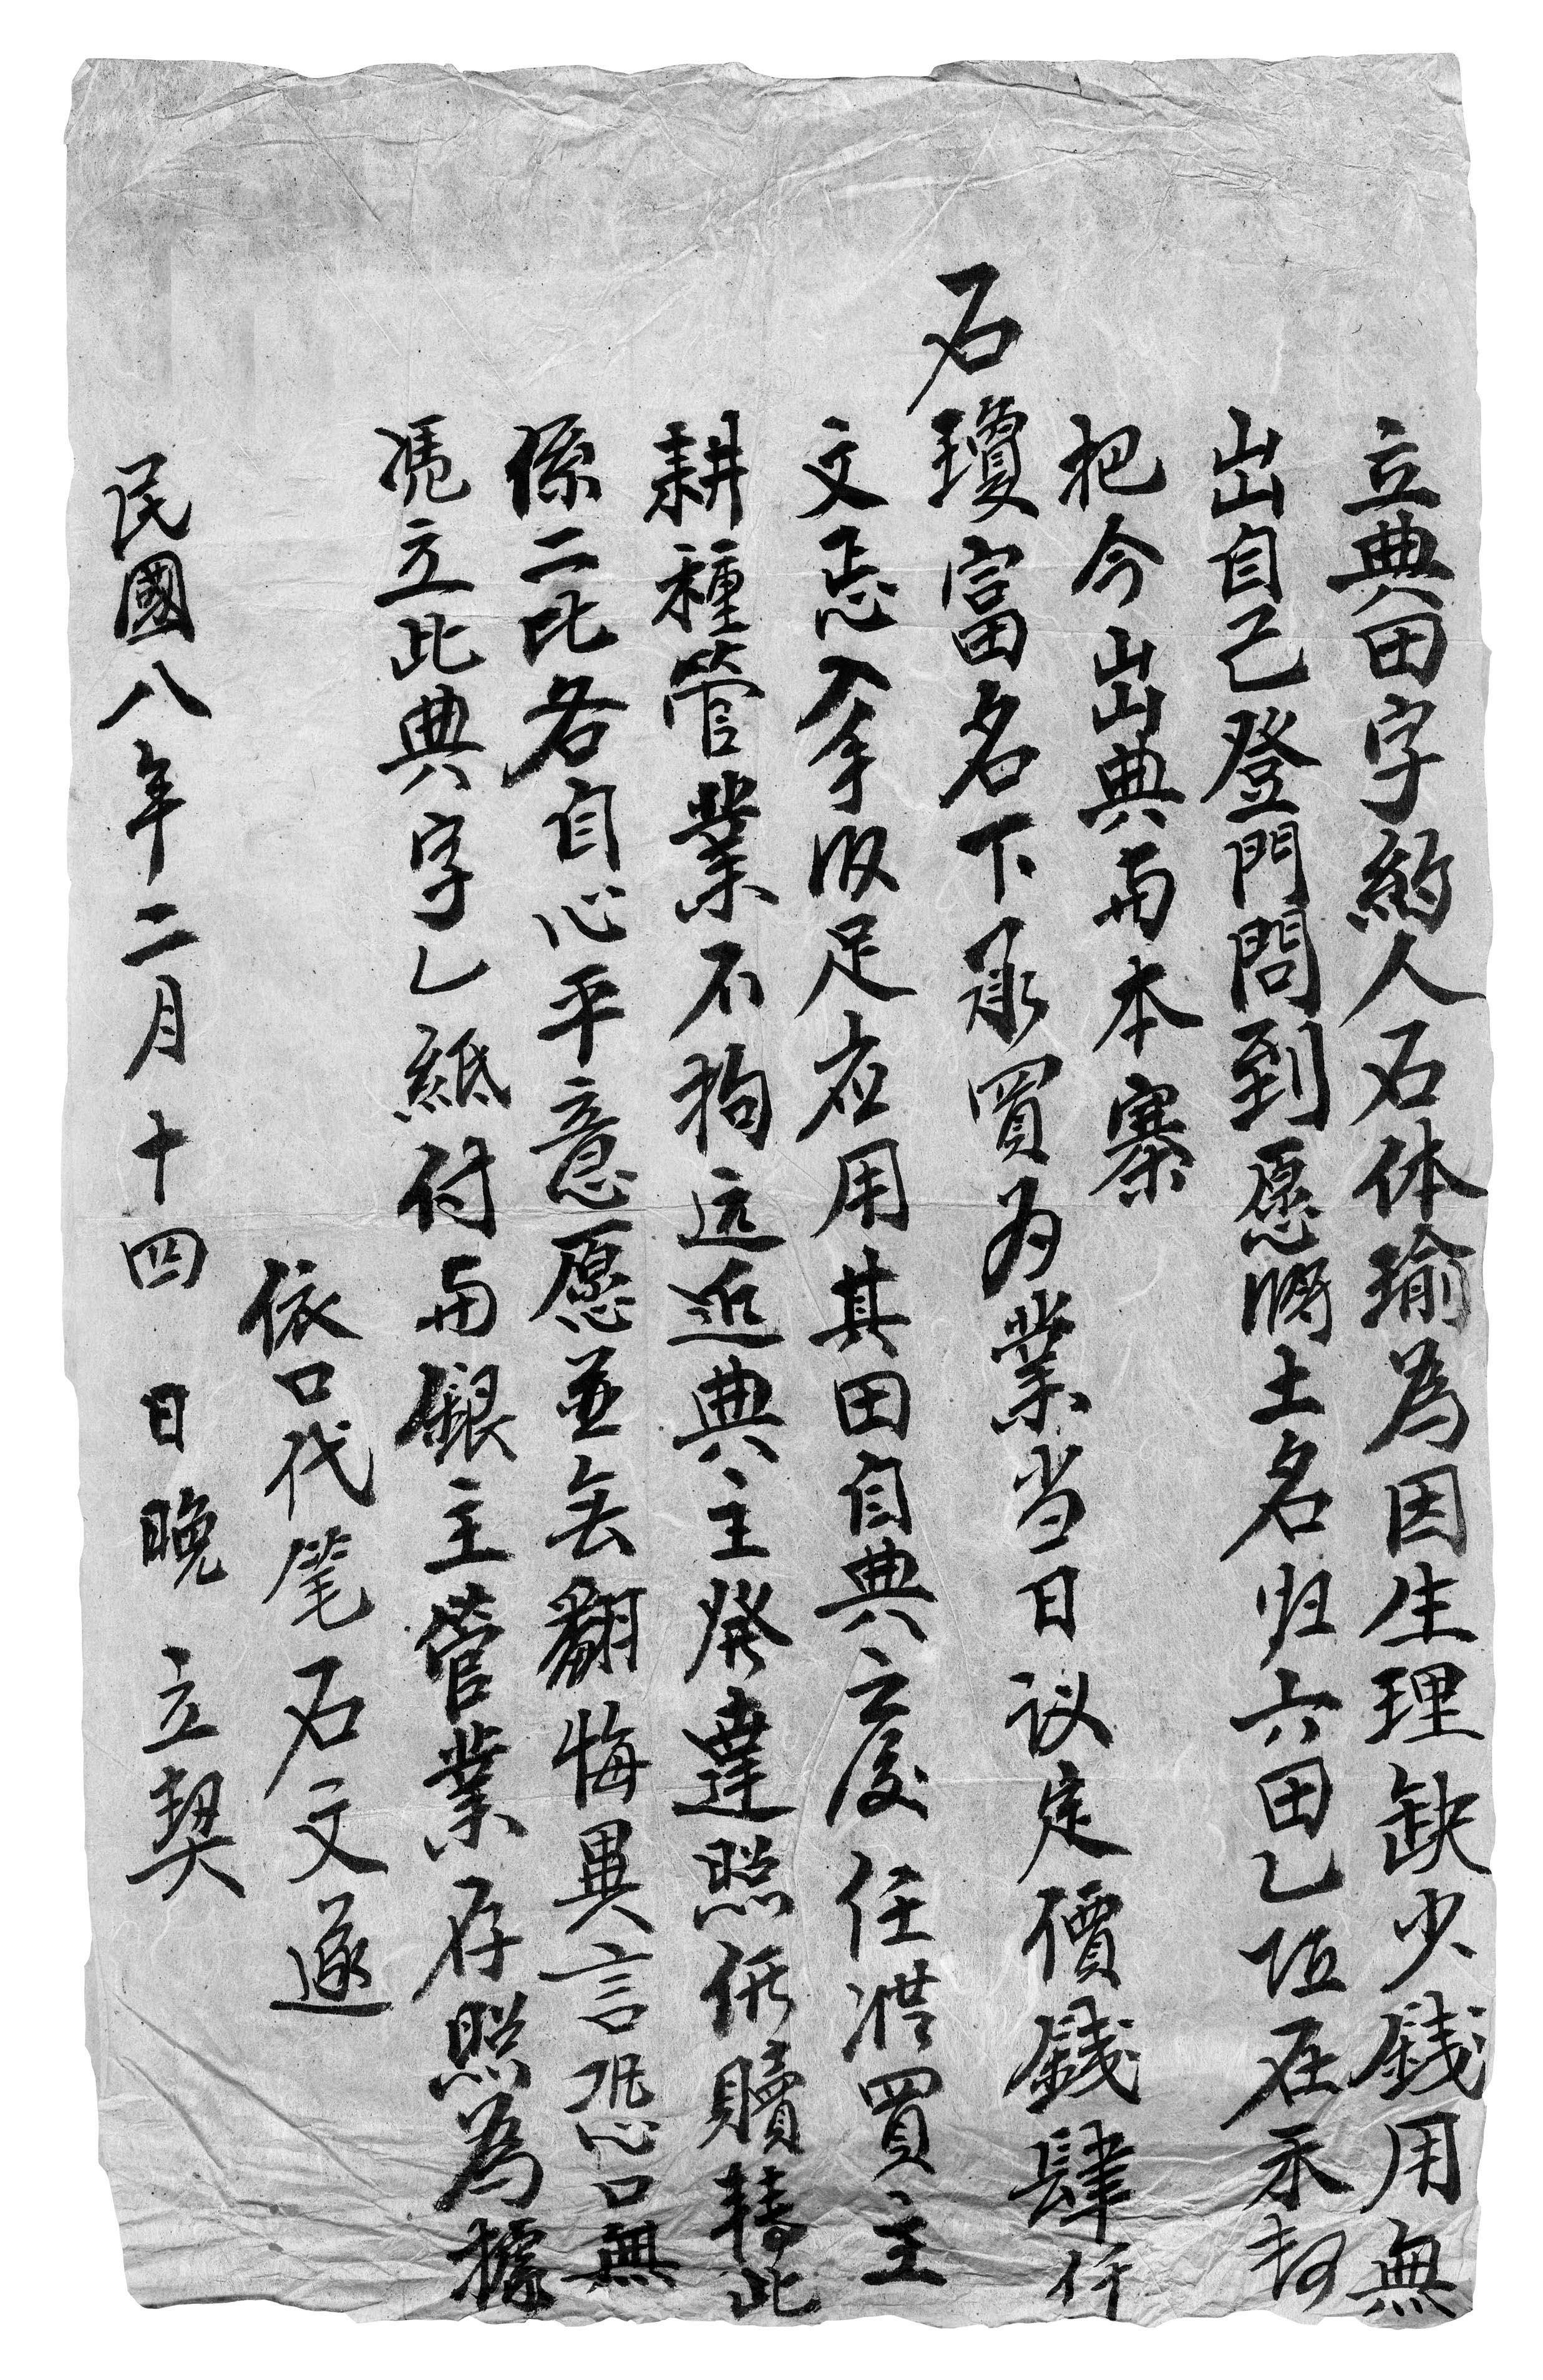 立典田字約人石体瑜為因生理缺少銭用無
出自己登門問到愿將土名归六田乙坵在禾
把今出典与本寨
石瓊富名下承買为業当日议定價銭肆仟
文忎入手收足应用其田自典之後任凴買主
耕種管業不拘远近典主發達照依贖轉此
係二比各自心平意愿並無翻悔異言恐口無
凴立此典字乙紙付与銀主管業存照為據
依口代笔石文遂
民國八年二月十四日晚立契